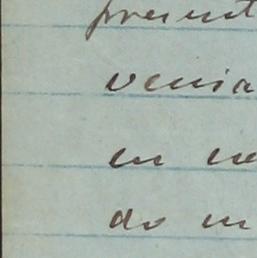 present
venia
en ne
do in